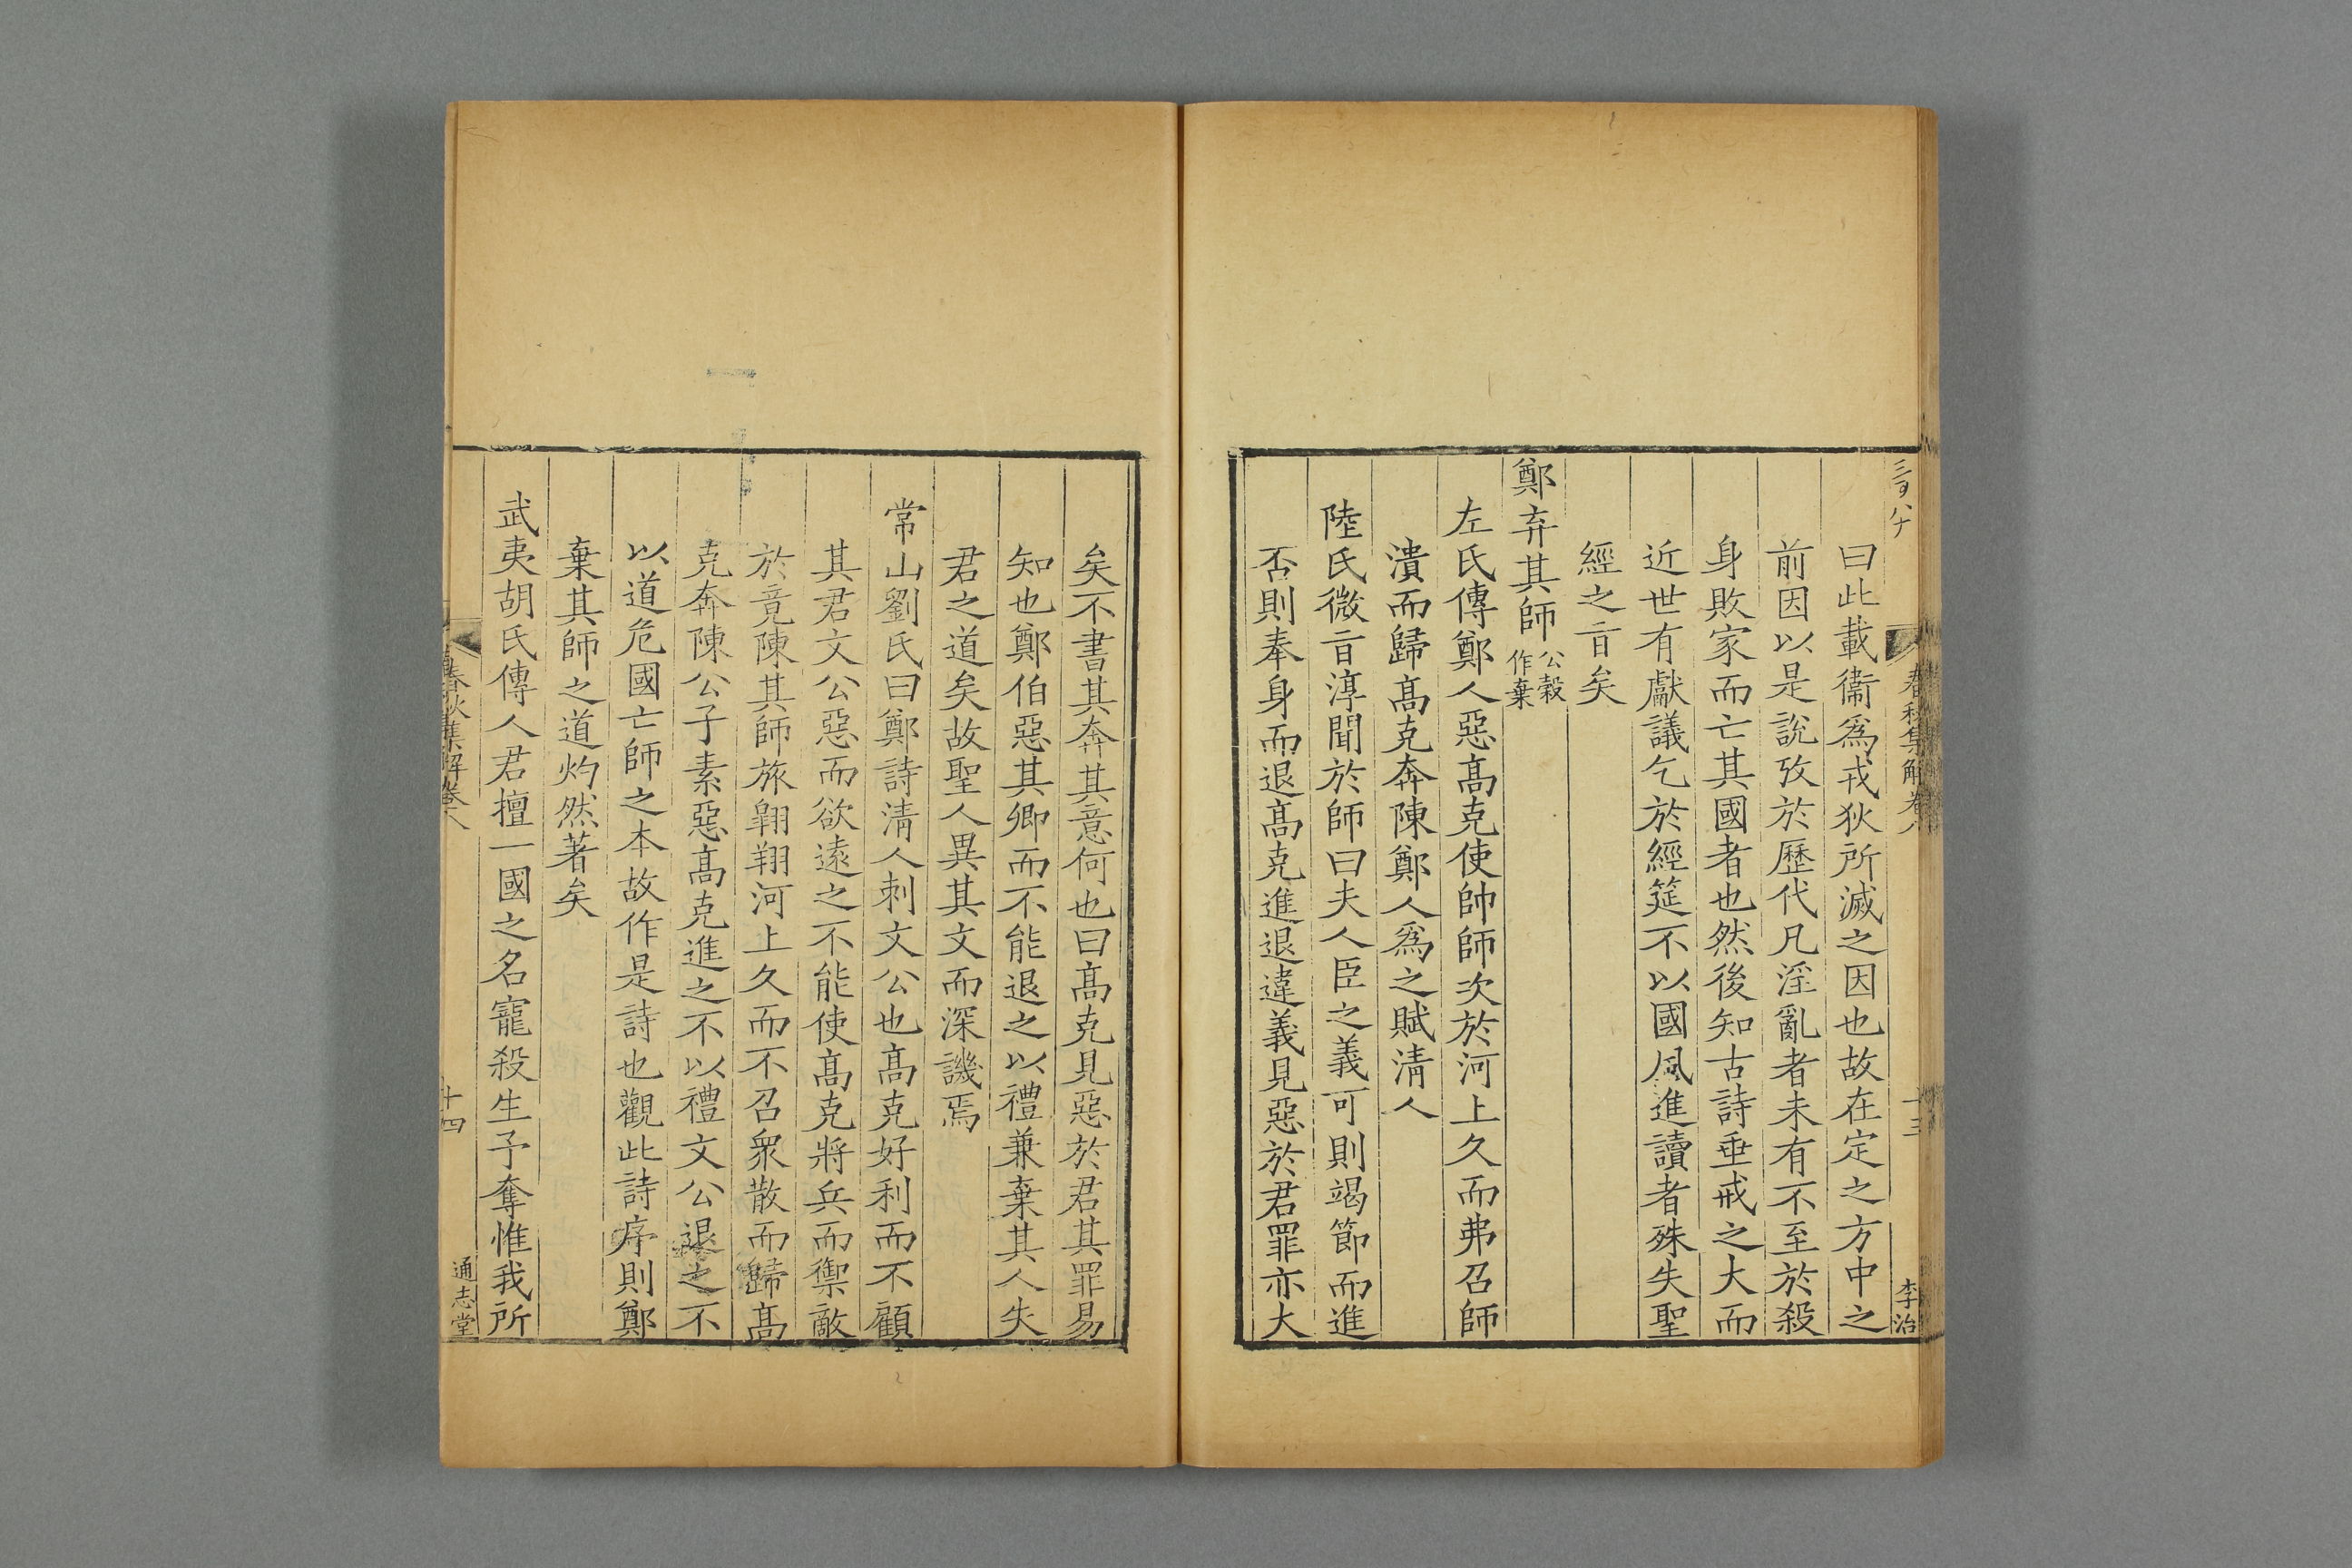 三百八十
春秋集解卷八
十三
李治
曰此載衞爲戎狄所滅之因也故在定之方中之
前因以是說攷於歷代凡淫亂者未有不至於殺
身敗家而亡其國者也然後知古詩垂戒之大而
近世有獻議乞於經筵不以國風進讀者殊失聖
經之㫖矣
鄭弃其師公穀作棄
左氏傳鄭人惡髙克使帥師次於河上久而弗召師
潰而歸髙克奔陳鄭人爲之賦淸人
陸氏微㫖淳聞於師曰夫人臣之義可則竭節而進
否則奉身而退髙克進退違義見惡於君罪亦大
矣不書其奔其意何也曰髙克見惡於君其罪易
知也鄭伯惡其卿而不能退之以禮兼棄其人失
君之道矣故聖人異其文而深譏焉
常山劉氏曰鄭詩淸人刺文公也髙克好利而不顧
其君文公惡而欲逺之不能使髙克將兵而禦敵
於竟陳其師旅翺翔河上久而不召衆散而歸髙
克奔陳公子素惡髙克進之不以禮文公退之不
以道危國亡師之本故作是詩也觀此詩序則鄭
棄其師之道灼然著矣
武夷胡氏傳人君擅一國之名寵殺生予奪惟我所
春秋集解卷八
十四
通志堂